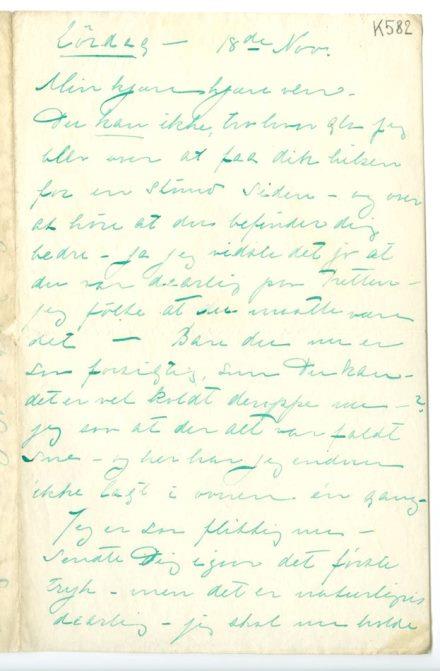 K582
Lördag – 18de Nov.
Min kjære kjære ven –
Du kan ikke, tro hvor glad jeg
blev over at faa din hilsen
for en stund siden – og over
at höre at du befinder dig
bedre – ja jeg vidste det jo at
du var daarlig paa Tretten –
jeg følte at du maatte være
det – Bare du nu er
saa forsigtig, som Du kan –
det er vel koldt deroppe nu – ?
jeg saa at der alt var faldt
sne – og her har jeg endnu
ikke lagt i ovnen én gang –
Jeg er saa flittig nu –
Sendte Dig igaar det første
tryk – men det er naturligvis
daarlig – jeg skal nu holde